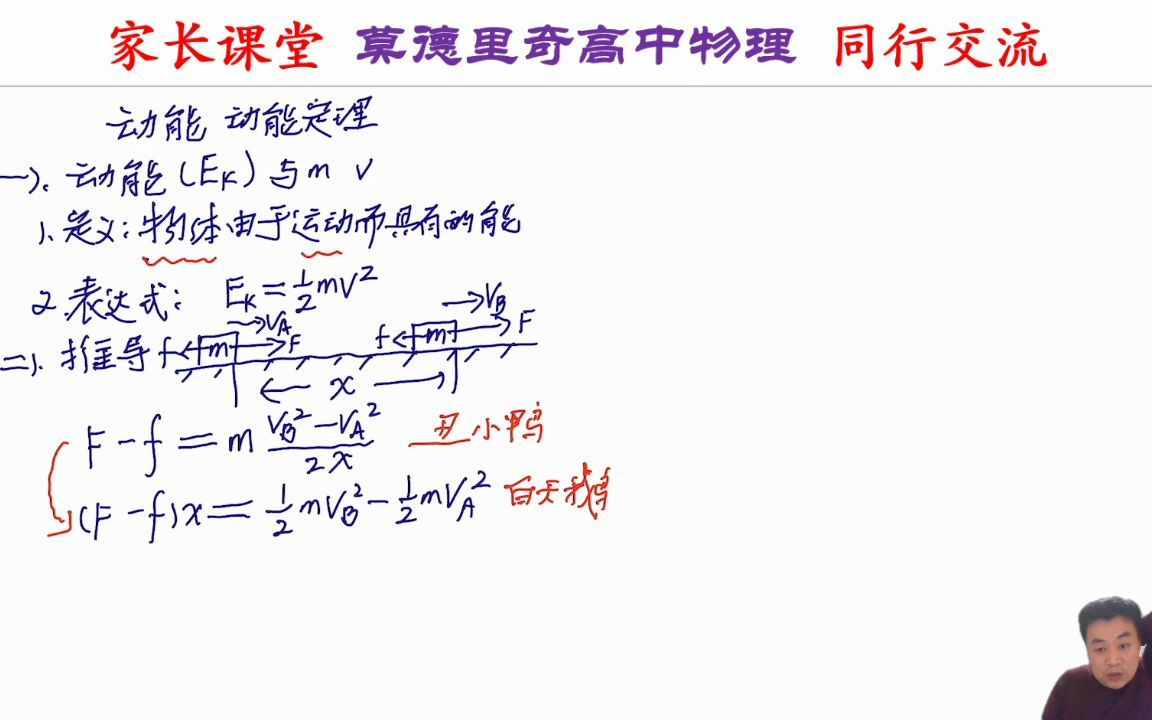 家长课堂 莫德里奇高中物理 同行交流
动能 动能定理
一). 动能(E_K)与m v
1. 定义:物体由于运动而具有的能
2. 表达式: E_K=½mv²
→V_A →V_B
二). 推导 f m F f m F
x
F-f=m (V_B²-V_A²)/2x 丑小鸭
(F-f)x=½mV_B²-½mV_A² 白天鹅